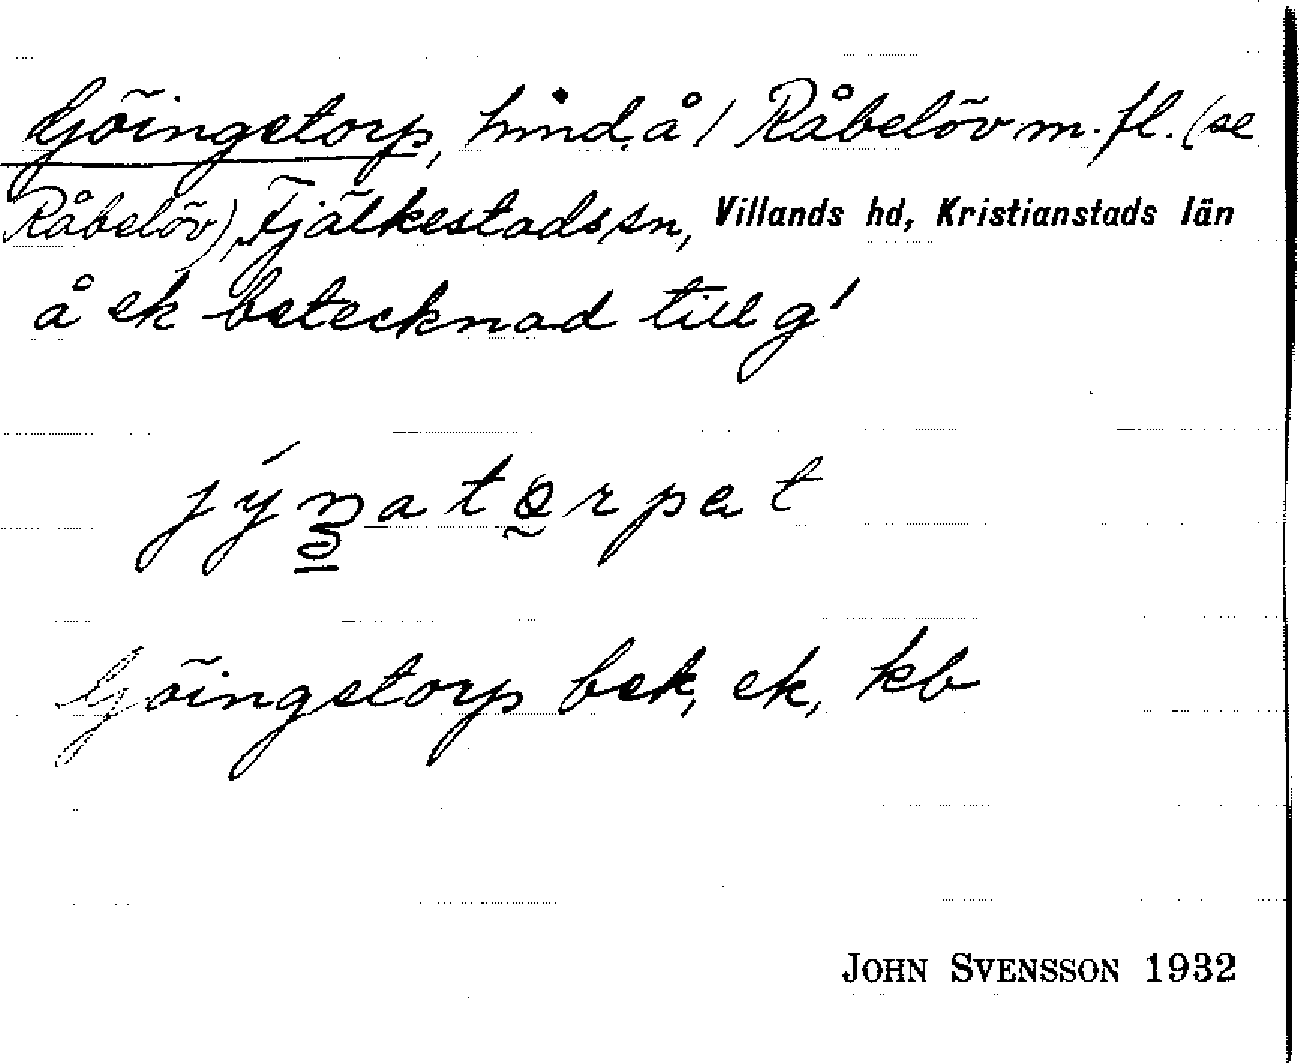 Göingetorp, hmd å 1 Råbelöv m. fl. (se
Råbelöv), Fjälkestads sn, Villands hd, Kristianstads län
å ek betecknad till g!
jýŋatorpet
Göingetorp bek, ek, kb
JOHN SVENSSON 1932